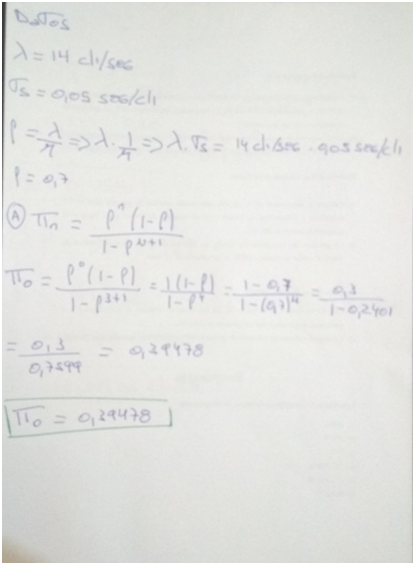 DATOS
λ = 14 cli/seg
Ts = 0,05 seg/cli
ρ = λ/μ => λ · 1/μ => λ · Ts = 14 cli/seg · 0,05 seg/cli
ρ = 0,7
(A) Πn = ρ^n (1-ρ) / 1-ρ^(N+1)
Π0 = ρ^0 (1-ρ) / 1-ρ^(3+1) = 1(1-ρ) / 1-ρ^4 = 1-0,7 / 1-(0,7)^4 = 0,3 / 1-0,2401
= 0,3 / 0,7599 = 0,39478
Π0 = 0,39478